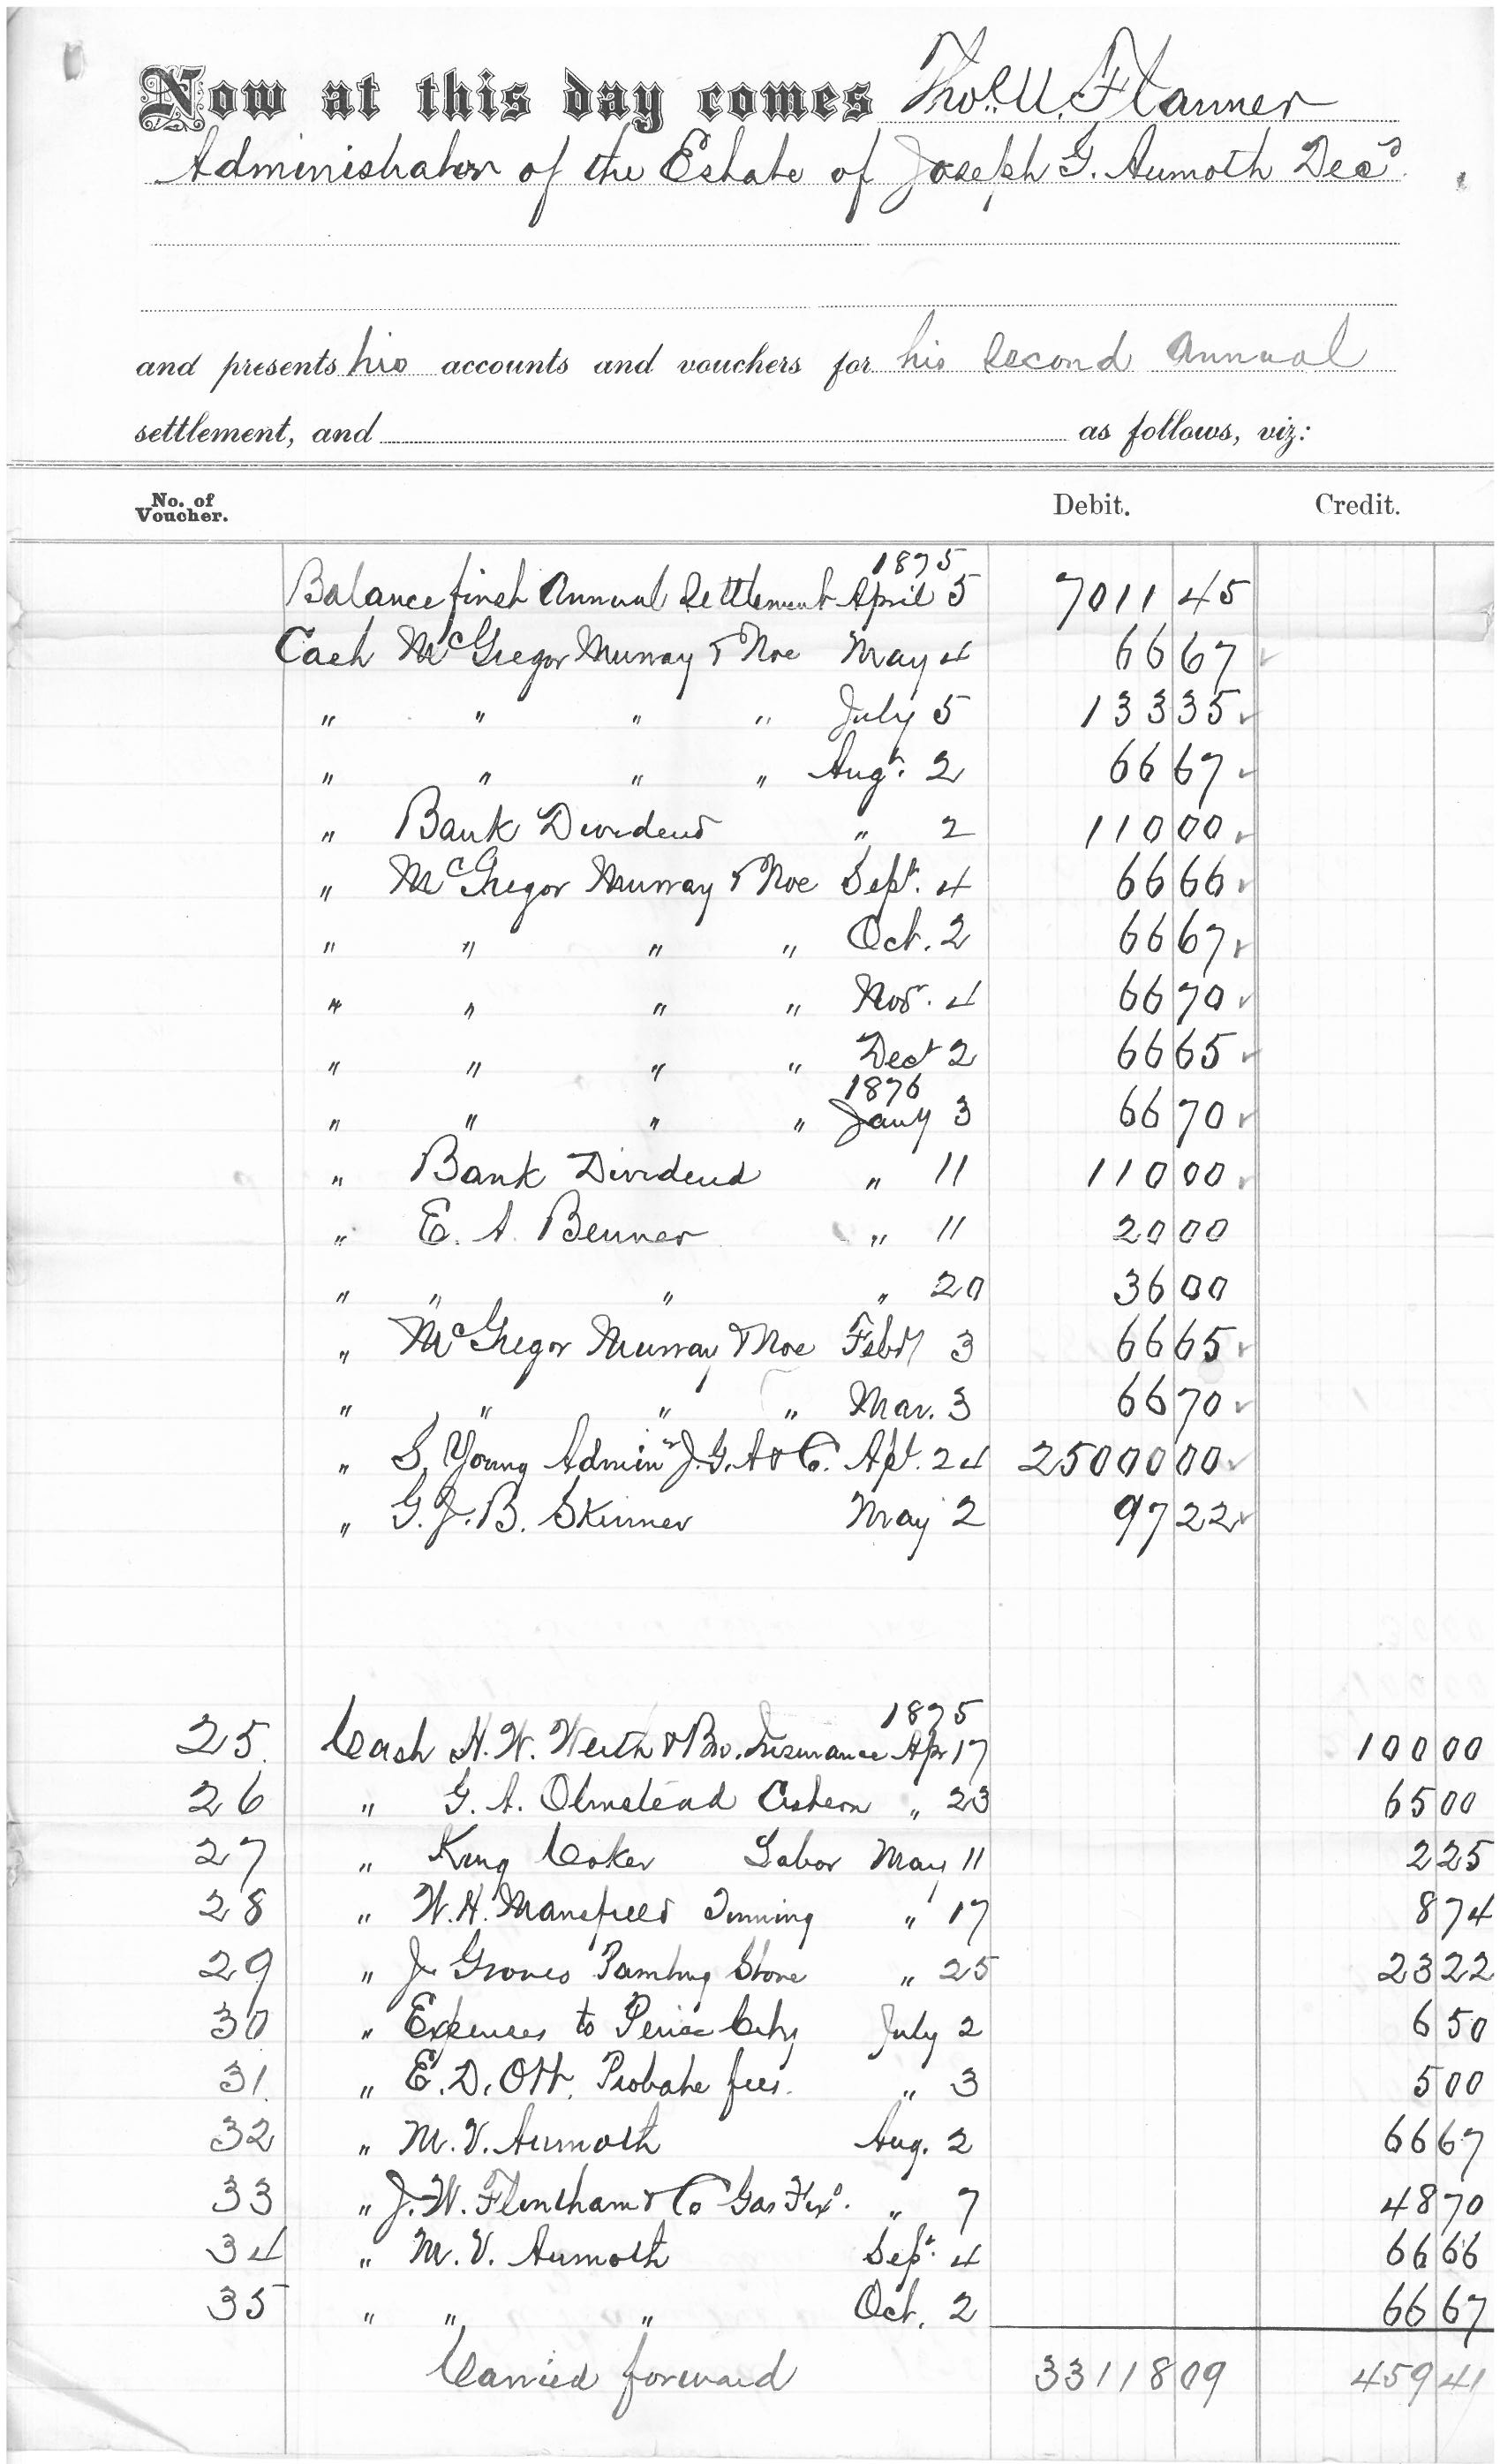 Now at this day comes Thos. U. Flanner
Administrator of the Estate of Joseph G. Aumoth Decd.
and presents his accounts and vouchers for his Second Annual
settlement, and as follows, viz:
No. of Voucher. Debit. Credit.
1875
Balance first Annual Settlement April 5 7011 45
Cash McGregor Murray & Noe May 4 66 67
" " " " July 5 133 35
" " " " Augt. 2 66 67
" Bank Dividend " 2 110 00
" McGregor Murray & Noe Sept. 4 66 66
" " " " Oct. 2 66 67
" " " " Nov. 4 66 70
" " " " Dect 2 66 65
1876
" " " " Jany 3 66 70
" Bank Dividend " 11 110 00
" E. A. Benner " 11 20 00
" " " " 20 36 00
" McGregor Murray & Noe Feby 3 66 65
" " " " Mar. 3 66 70
" S. Young Adminr J. G. A & Co. Apl. 24 25000 00
" G. J. B. Skinner May 2 97 22
1875
25. Cash H. W. Werth & Bro. Insurance Apr 17 100 00
26 " G. A. Olmstead Cistern " 23 65 00
27 " King Coker Labor May 11 2 25
28 " W. H. Mansfield Tinning " 17 8 74
29 " J. Groves Painting Store " 25 23 22
30 " Expenses to Peirce City July 2 6 50
31. " E. D. Ott. Probate fees. " 3 5 00
32 " M. V. Aumoth Aug. 2 66 67
33 " J. W. Flintham & Co Gas Fixs. " 7 48 70
34 " M. V. Aumoth Sept. 4 66 66
35 " " " Oct. 2 66 67
Carried forward 33118 09 459 41